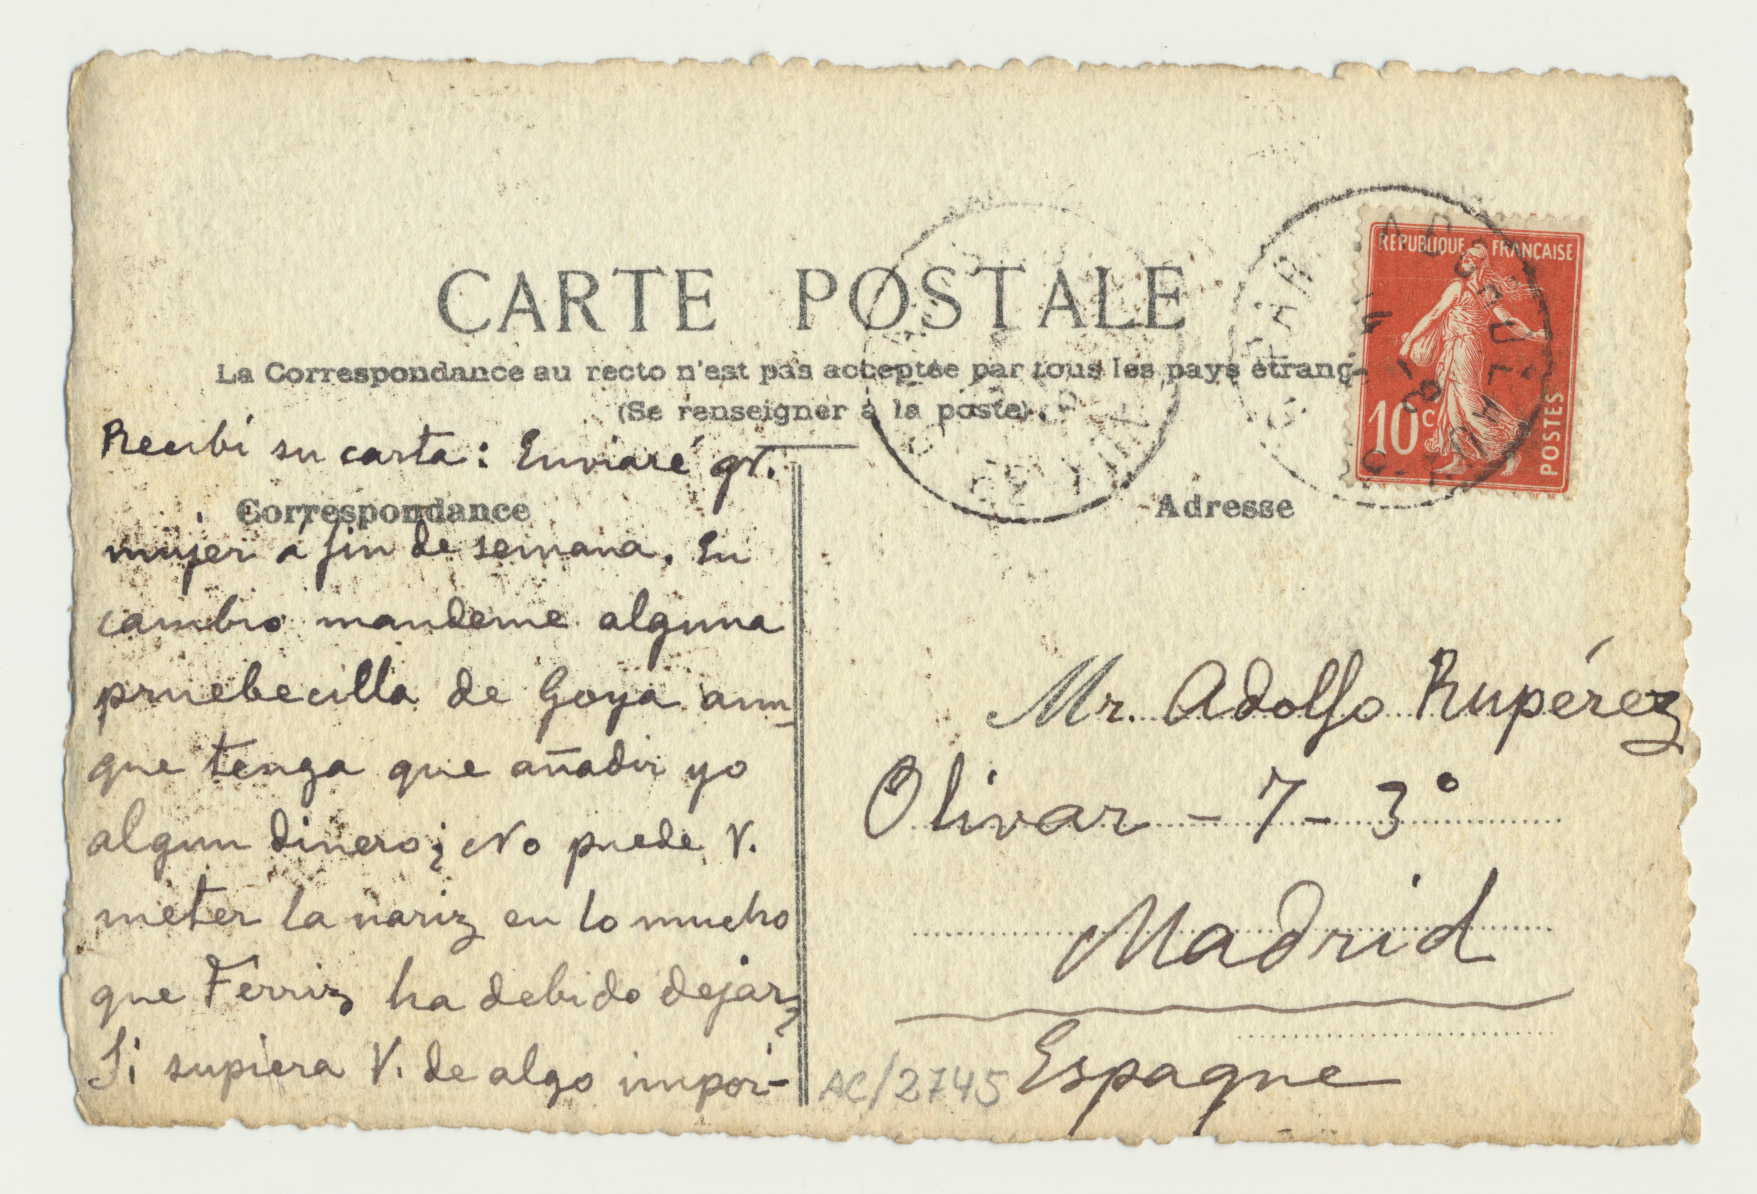 CARTE POSTALE
La Correspondance au recto n'est pas acceptée par tous les pays étrang
(Se renseigner à la poste)
Correspondance
Recibí su carta: Enviaré gr.
mujer á fin de semana. En
cambio mandeme alguna
pruebecilla de Goya aun-
que tenga que añadir yo
algun dinero ¿No puede V.
meter la nariz en lo mucho
que Ferriz ha debido dejar?
Si supiera V. de algo impor-
RÉPUBLIQUE FRANÇAISE
10c
POSTES
Adresse
Mr. Adolfo Rupérez
Olivar - 7 - 3º
Madrid
Espagne
AC/2745